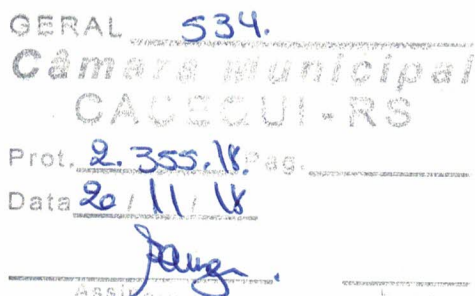 GERAL 534.
Câmara Municipal
CACEQUI - RS
Prot. 2.355.18. Pag.
Data 20 / 11 / 18